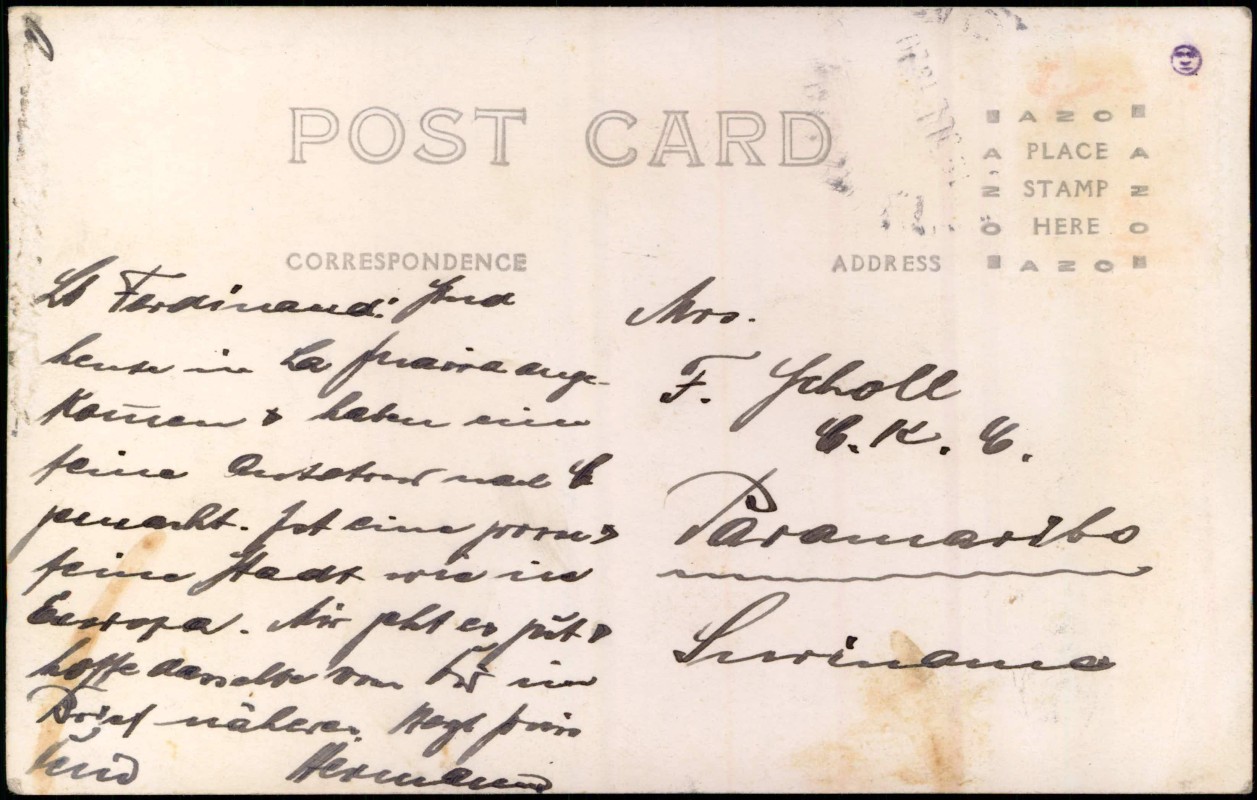 POST CARD
AZO
A PLACE A
Z STAMP Z
O HERE O
AZO
CORRESPONDENCE
ADDRESS
Lb Ferdinand: Sind
heute in La Guaira ange-
kom̄en & haben eine
feine Autotour nach C
gemacht. Ist eine grosse
feine Stadt wie in
Europa. Mir geht es gut &
hoffe dasselbe von Dir im
Brief näheres. Hrzl grüs
Hermann
Mrs.
F. Scholl
C. K. C.
Paramaribo
Suriname